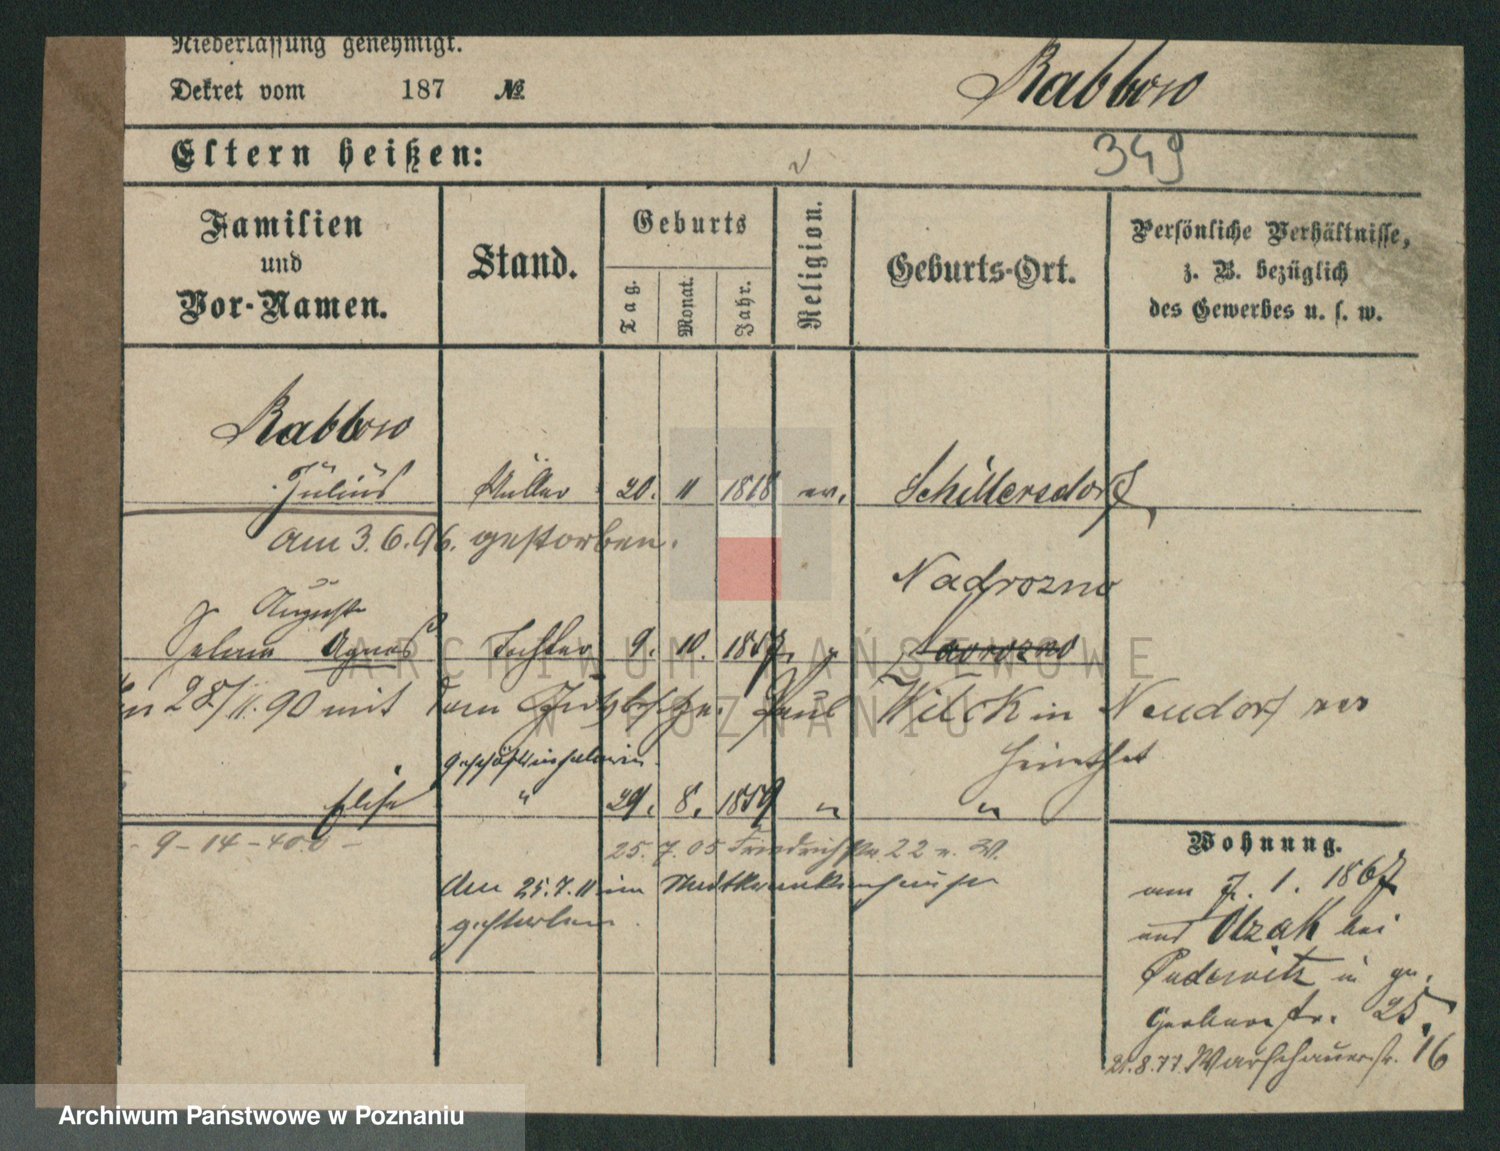 Niederlassung genehmigt.
Dekret vom 187 №
Rabbow
349
Eltern heißen:
Familien
und
Vor-Namen.
Stand.
Geburts
Tag.
Monat.
Jahr.
Religion.
Geburts-Ort.
Persönliche Verhältnisse,
z. B. bezüglich
des Gewerbes u. s. w.
Rabbow
Julius Müller 20. 11 1818 ev. Schillersdorf
am 3.6.96. gestorben.
Auguste
Nadrozno
Agnes Tochter 9. 10. 1857
28/11.90 mit dem Paul Wilck in Neudorf
Elise " 29. 8. 1859 " "
9-14-400-
25.7.05 Friedrichstr. 22
den 25.7.11 im Stadtkrankenhause
gestorben.
Wohnung.
am 7. 1. 1867
aus Olzak bei
Pudewitz in
Gerberstr. 25.
21.8.77. Warschauerstr. 16
ARCHIWUM PAŃSTWOWE
W POZNANIU
Archiwum Państwowe w Poznaniu